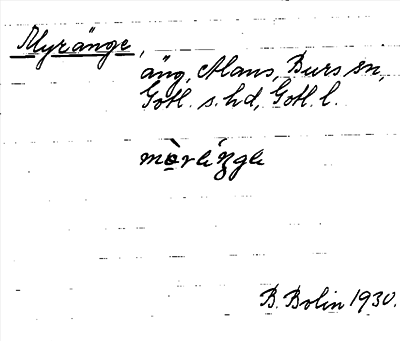 Myränge,
äng, Alans, Burs sn,
Gotl. s. hd, Gotl. l.
B. Bolin 1930.